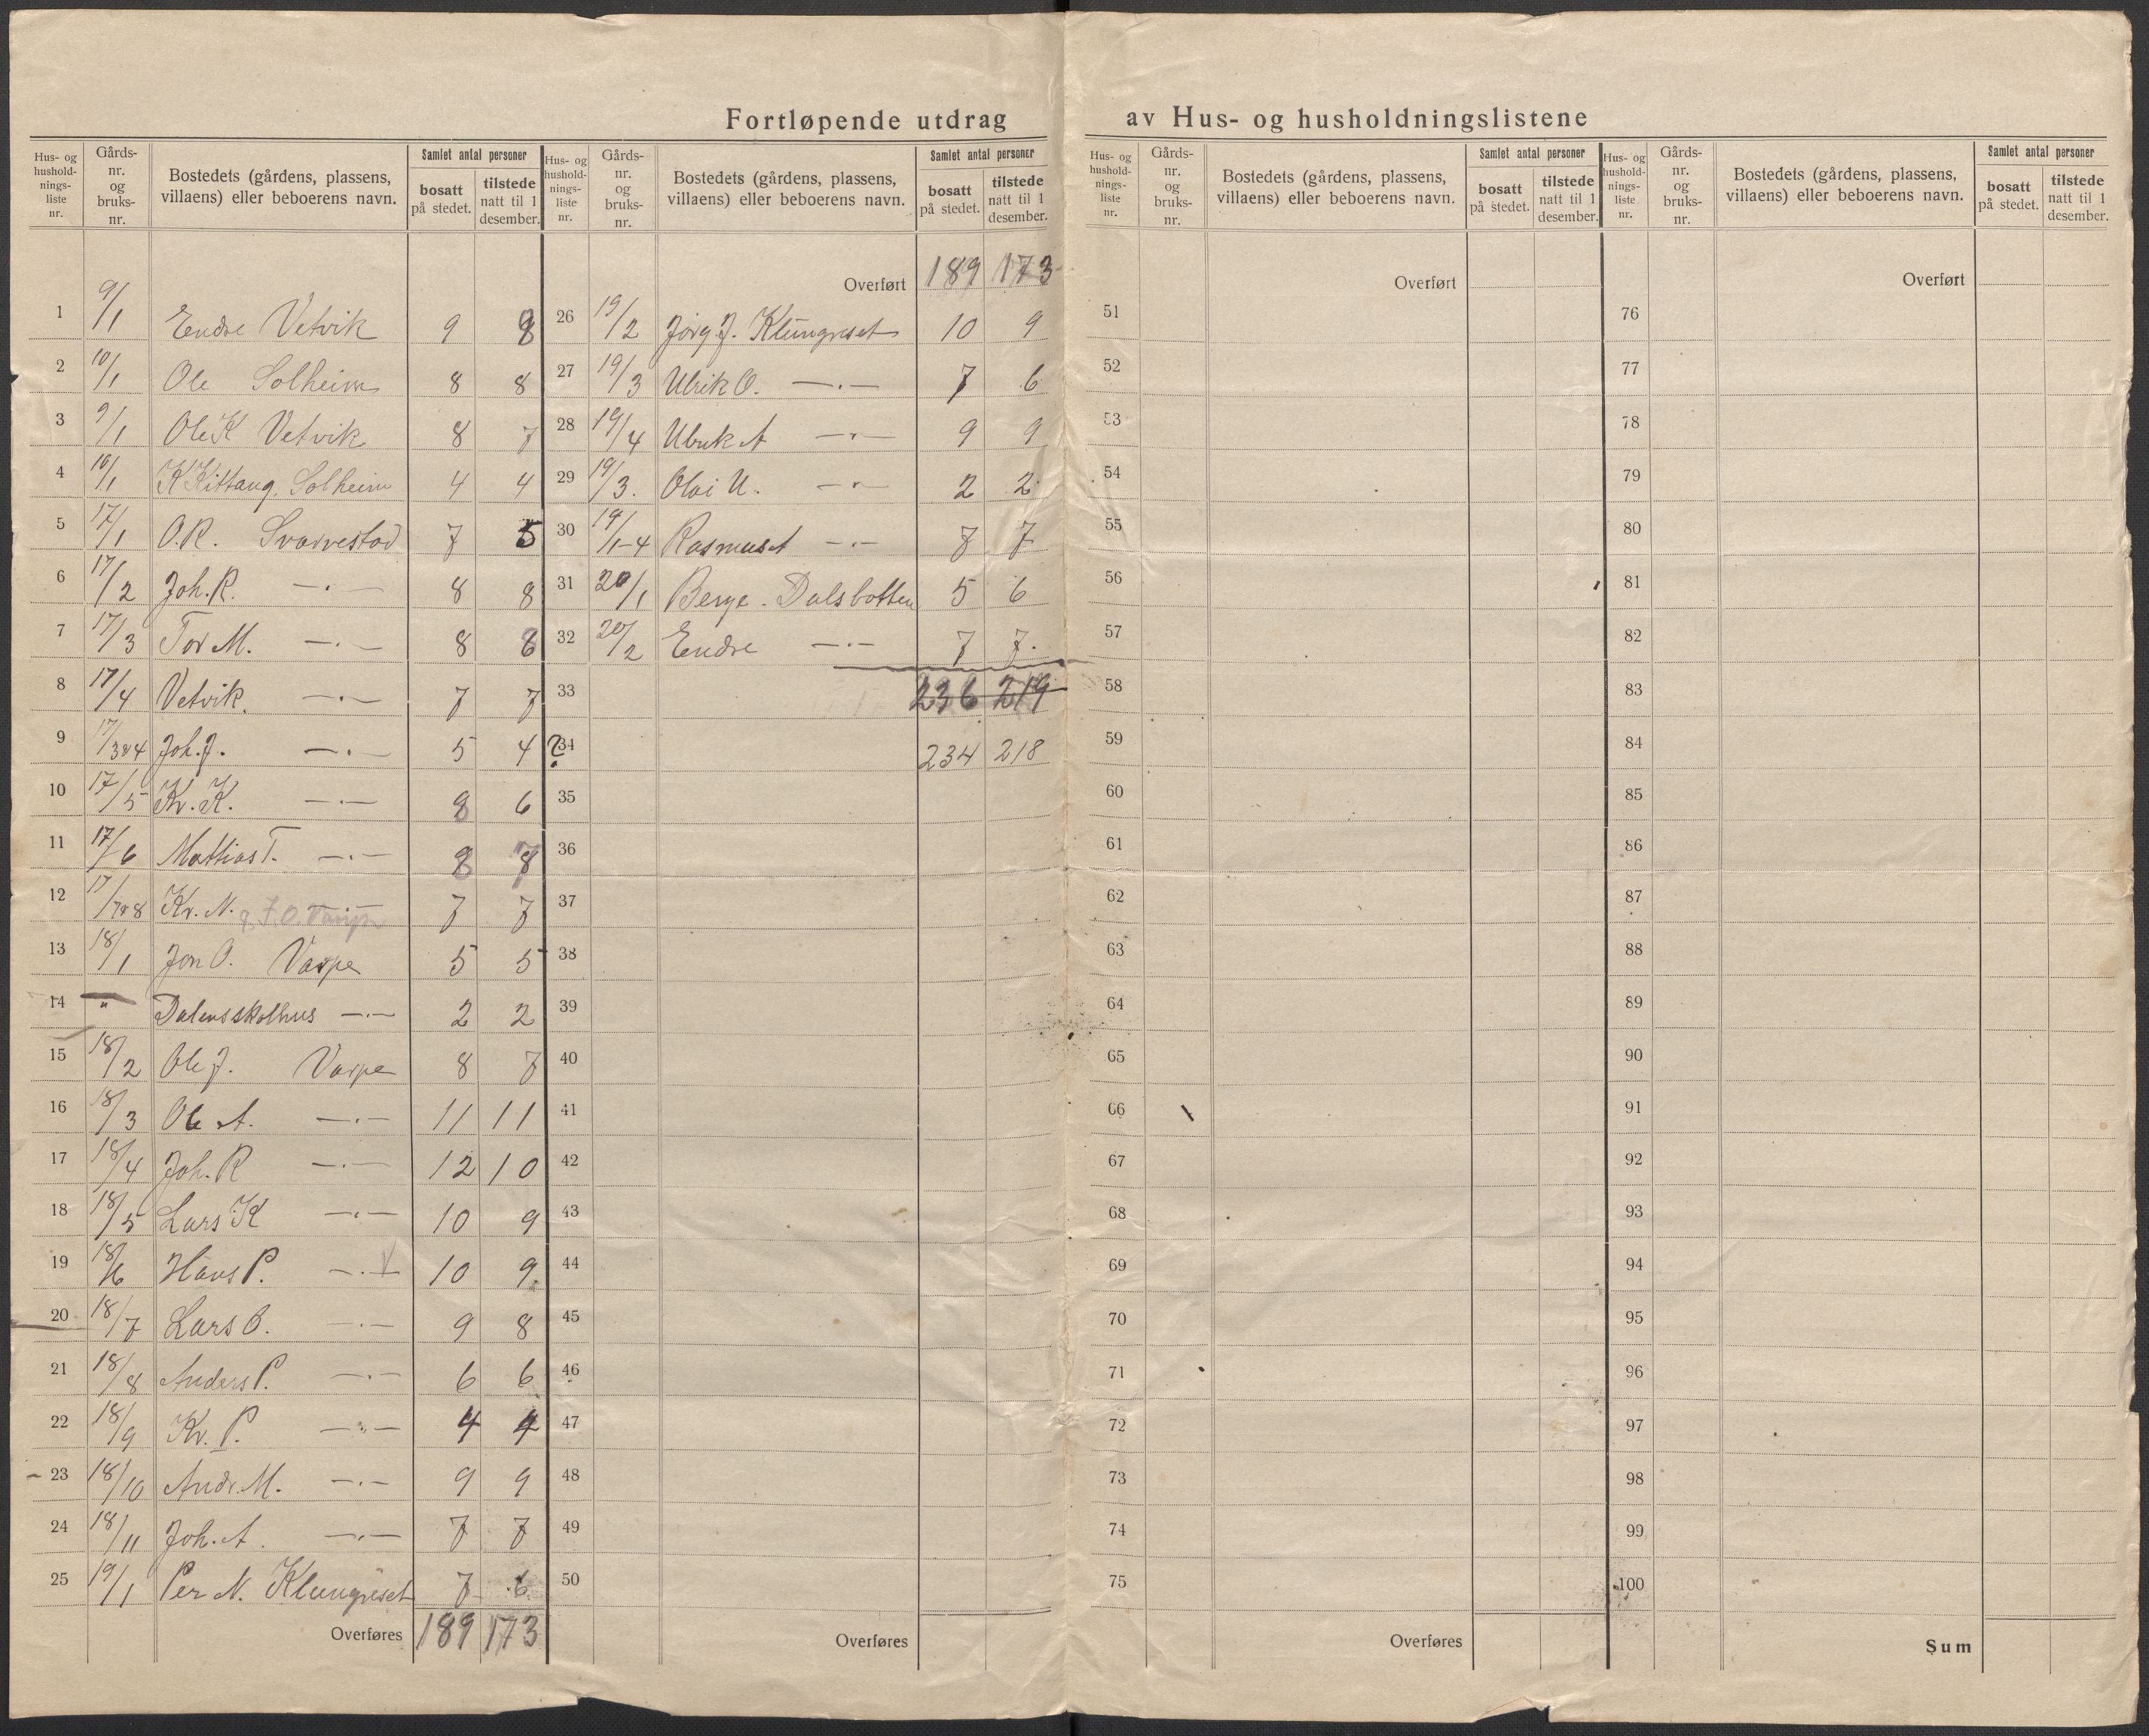 Fortløpende utdrag av Hus- og husholdningslistene
Hus- og hushold-nings-liste nr. Gårds-nr. og bruks-nr. Bostedets (gårdens, plassens, villaens) eller beboerens navn. Samlet antal personer bosatt på stedet. tilstede natt til 1 desember.
1 9/1 Endre Vetvik 9 8
2 10/1 Ole Solheim 8 8
3 9/1 Ole K Vetvik 8 7
4 10/1 K Kittang. Solheim 4 4
5 17/1 O.R. Svarvestad 7 5
6 17/2 Joh. R. —.— 8 8
7 17/3 Tor M. —.— 8 8
8 17/4 Vetvik. —.— 7 7
9 17/3&4 Joh. J. —.— 5 4
10 17/5 Kr. K. —.— 8 6
11 17/6 Mathias T. —.— 8
12 17/7&8 Kr. N. 7 7
13 18/1 Jon O. Varpe 5 5
14 " Dalens skolhus —.— 2 2
15 18/2 Ole J. Varpe 8 7
16 18/3 Ole A. —.— 11 11
17 18/4 Joh. R —.— 12 10
18 18/5 Lars K —.— 10 9
19 18/6 Hans P. —.— 10 9.
20 18/7 Lars O. —.— 9 8
21 18/8 Anders P. —.— 6 6
22 18/9 Kr. P. —.— 4 4
23 18/10 Andr. M. —.— 9 9
24 18/11 Joh. A. —.— 7 7
25 19/1 Per N. Klungreset 7 6
Overføres 189 173
Hus- og hushold-nings-liste nr. Gårds-nr. og bruks-nr. Bostedets (gårdens, plassens, villaens) eller beboerens navn. Samlet antal personer bosatt på stedet. tilstede natt til 1 desember.
Overført 189 173
26 19/2 Jørg. J. Klungreset 10 9
27 19/3 Ulrik O. —.— 7 6
28 19/4 Ulrik A —.— 9 9
29 19/3. Olai U. —.— 2 2
30 19/1-4 Rasmus A —.— 7
31 20/1 Berge. Dalsbotten 5 6
32 20/2 Endre —.— 7 7.
33 236 219
34 234 218
35
36
37
38
39
40
41
42
43
44
45
46
47
48
49
50
Overføres
Hus- og hushold-nings-liste nr. Gårds-nr. og bruks-nr. Bostedets (gårdens, plassens, villaens) eller beboerens navn. Samlet antal personer bosatt på stedet. tilstede natt til 1 desember.
Overført
51
52
53
54
55
56
57
58
59
60
61
62
63
64
65
66
67
68
69
70
71
72
73
74
75
Overføres
Hus- og hushold-nings-liste nr. Gårds-nr. og bruks-nr. Bostedets (gårdens, plassens, villaens) eller beboerens navn. Samlet antal personer bosatt på stedet. tilstede natt til 1 desember.
Overført
76
77
78
79
80
81
82
83
84
85
86
87
88
89
90
91
92
93
94
95
96
97
98
99
100
Sum